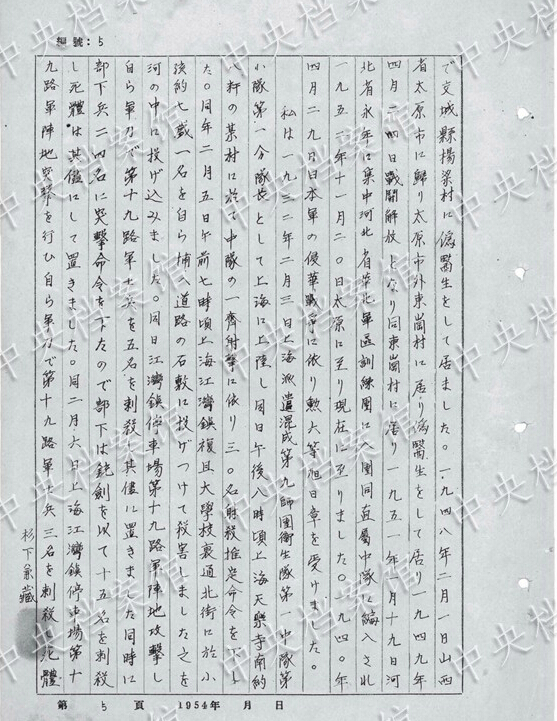 編號：5
で交城縣楊梁村に偽醫生をして居ました。一九四八年二月一日山西
省太原市に歸り太原市外東崗村に居り偽醫生をして居り一九四九年
四月二四日戰鬪解放となり同東崗村に居り一九五一年一月十九日河
北省永年に集中河北省華北軍區訓練團に入團同直屬中隊に編入され
一九五二年十一月二〇日太原に至り現在に至りました。一九四〇年
四月二九日日本軍の侵華戰爭に依り勲六等旭日章を受けました。
私は一九三二年二月三日上海派遣混成第九師團衛生隊第一中隊第
小隊第一分隊長として上海に上陸し同日午後八時頃上海天樂寺南約
八粁の某村に於て中隊の一齊射撃に依り三〇名射殺推定命令を下し
た。同年二月五日午前七時頃上海江灣鎮復旦大學校裏通北街に於て小
孩約七歳一名を自ら捕へ道路の石敷に投げつけて殺害しました之を
河の中に投げ込みました。同日江灣鎮停車場第十九路軍陣地攻撃し
自ら軍刀で第十九路軍士兵を五名を刺殺し其儘に置きました同時に
部下兵二四名に突撃命令を下たので部下は銃劍を以て十五名を刺殺
し死體は其儘にして置きました。同二月六日上海江灣鎮停車場第十
九路軍陣地突撃を行ひ自ら軍刀で第十九路軍士兵三名を刺殺し死體
杉下兼藏
第 5 頁 1954年 月 日
中央档案馆